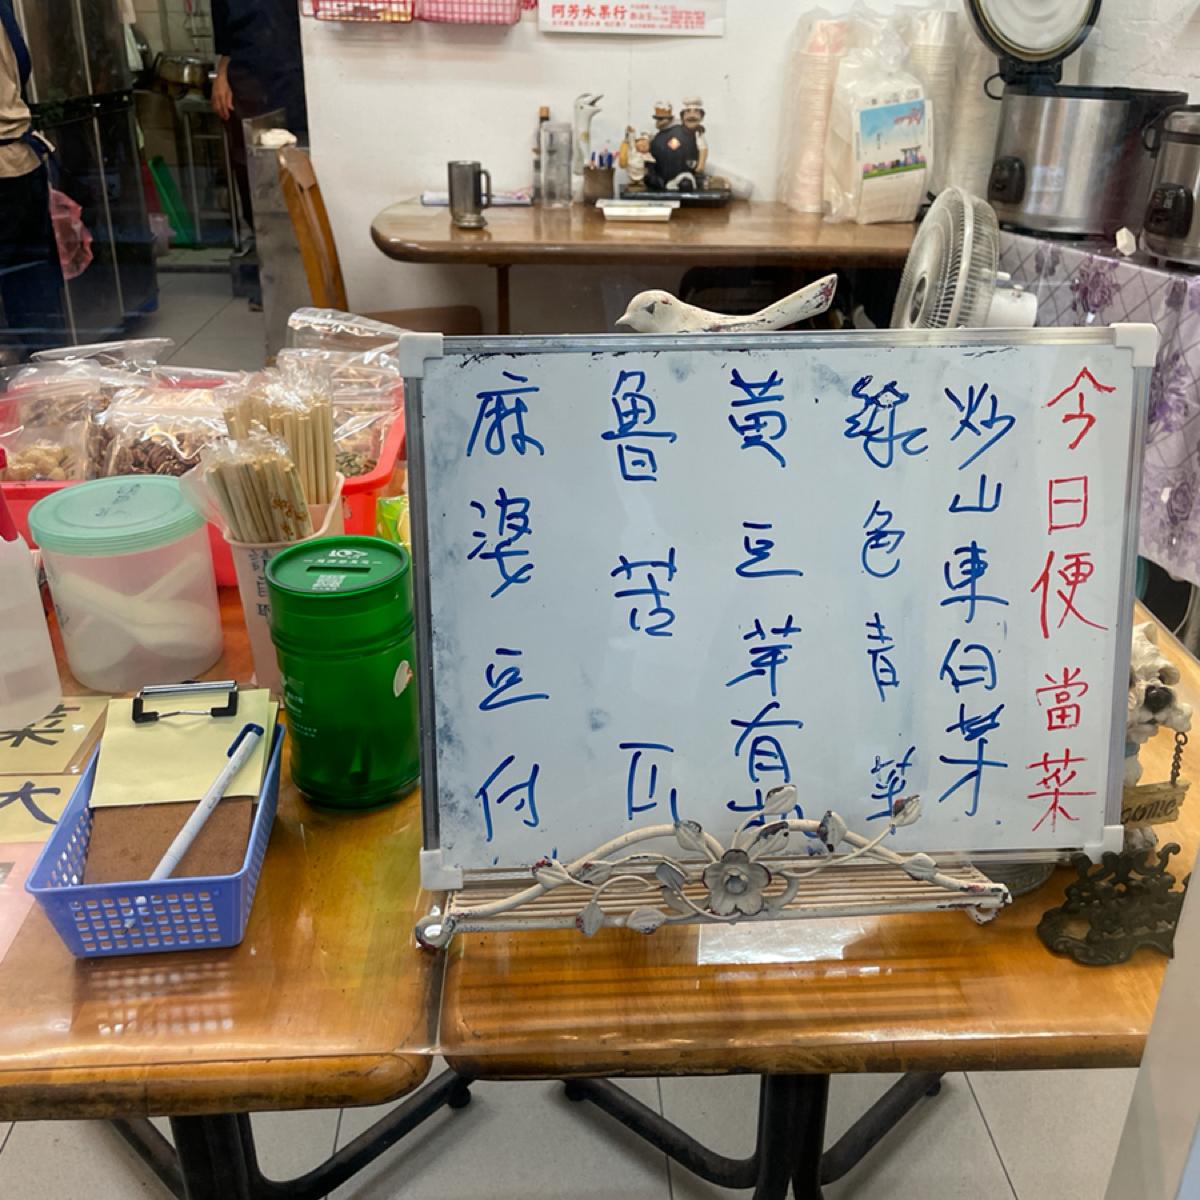 阿芳水果行
今日便當菜
炒山東白菜
綠色青菜
黃豆芽有機
魯苦瓜
麻婆豆付
請自取
菜
大
come